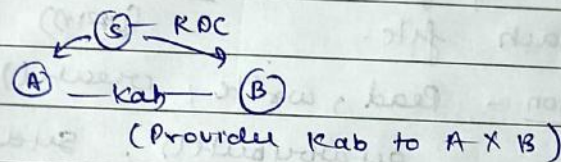 S — KDC
A — Kab — B
(Provides Kab to A & B)